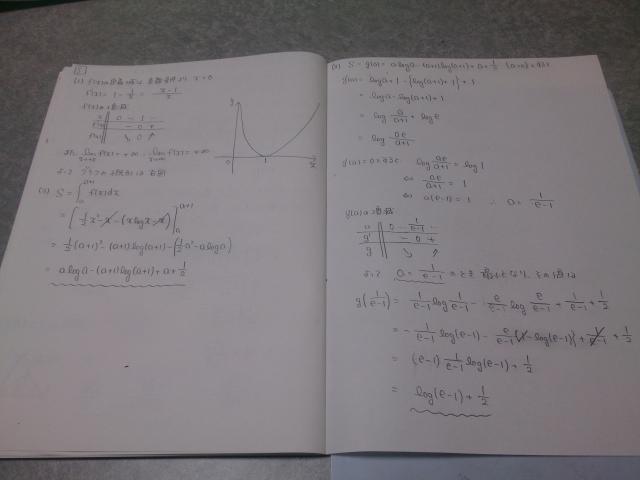 (1) f(x)の定義域は 真数条件より x > 0
f'(x) = 1 - 1/x = (x-1)/x
f(x)の増減
x | 0 … 1 …
f'(x) | - 0 +
f(x) | ↘ 0 ↗
また lim f(x) = +∞ lim f(x) = +∞
よって グラフの概形は右図
y
0 1 x
(2) S = ∫_a^{a+1} f(x)dx
= [ 1/2 x² - x - (x log x - x) ]_a^{a+1}
= 1/2 (a+1)² - (a+1)log(a+1) - (1/2 a² - a log a)
= a log a - (a+1)log(a+1) + a + 1/2
(3) S = g(a) = a log a - (a+1)log(a+1) + a + 1/2 (a>0) とすると
g'(a) = log a + 1 - {log(a+1) + 1} + 1
= log a - log(a+1) + 1
= log a/(a+1) + log e
= log ae/(a+1)
g'(a) = 0 とすると log ae/(a+1) = log 1
⇔ ae/(a+1) = 1
⇔ a(e-1) = 1 ∴ a = 1/(e-1)
g(a)の増減
a | 0 … 1/(e-1) …
g' | - 0 +
g | ↘ ↗
よって a = 1/(e-1) のとき 最小となり、その値は
g(1/(e-1)) = 1/(e-1) log 1/(e-1) - e/(e-1) log e/(e-1) + 1/(e-1) + 1/2
= - 1/(e-1) log(e-1) - e/(e-1) {1 - log(e-1)} + 1/(e-1) + 1/2
= (e-1) 1/(e-1) log(e-1) + 1/2
= log(e-1) + 1/2